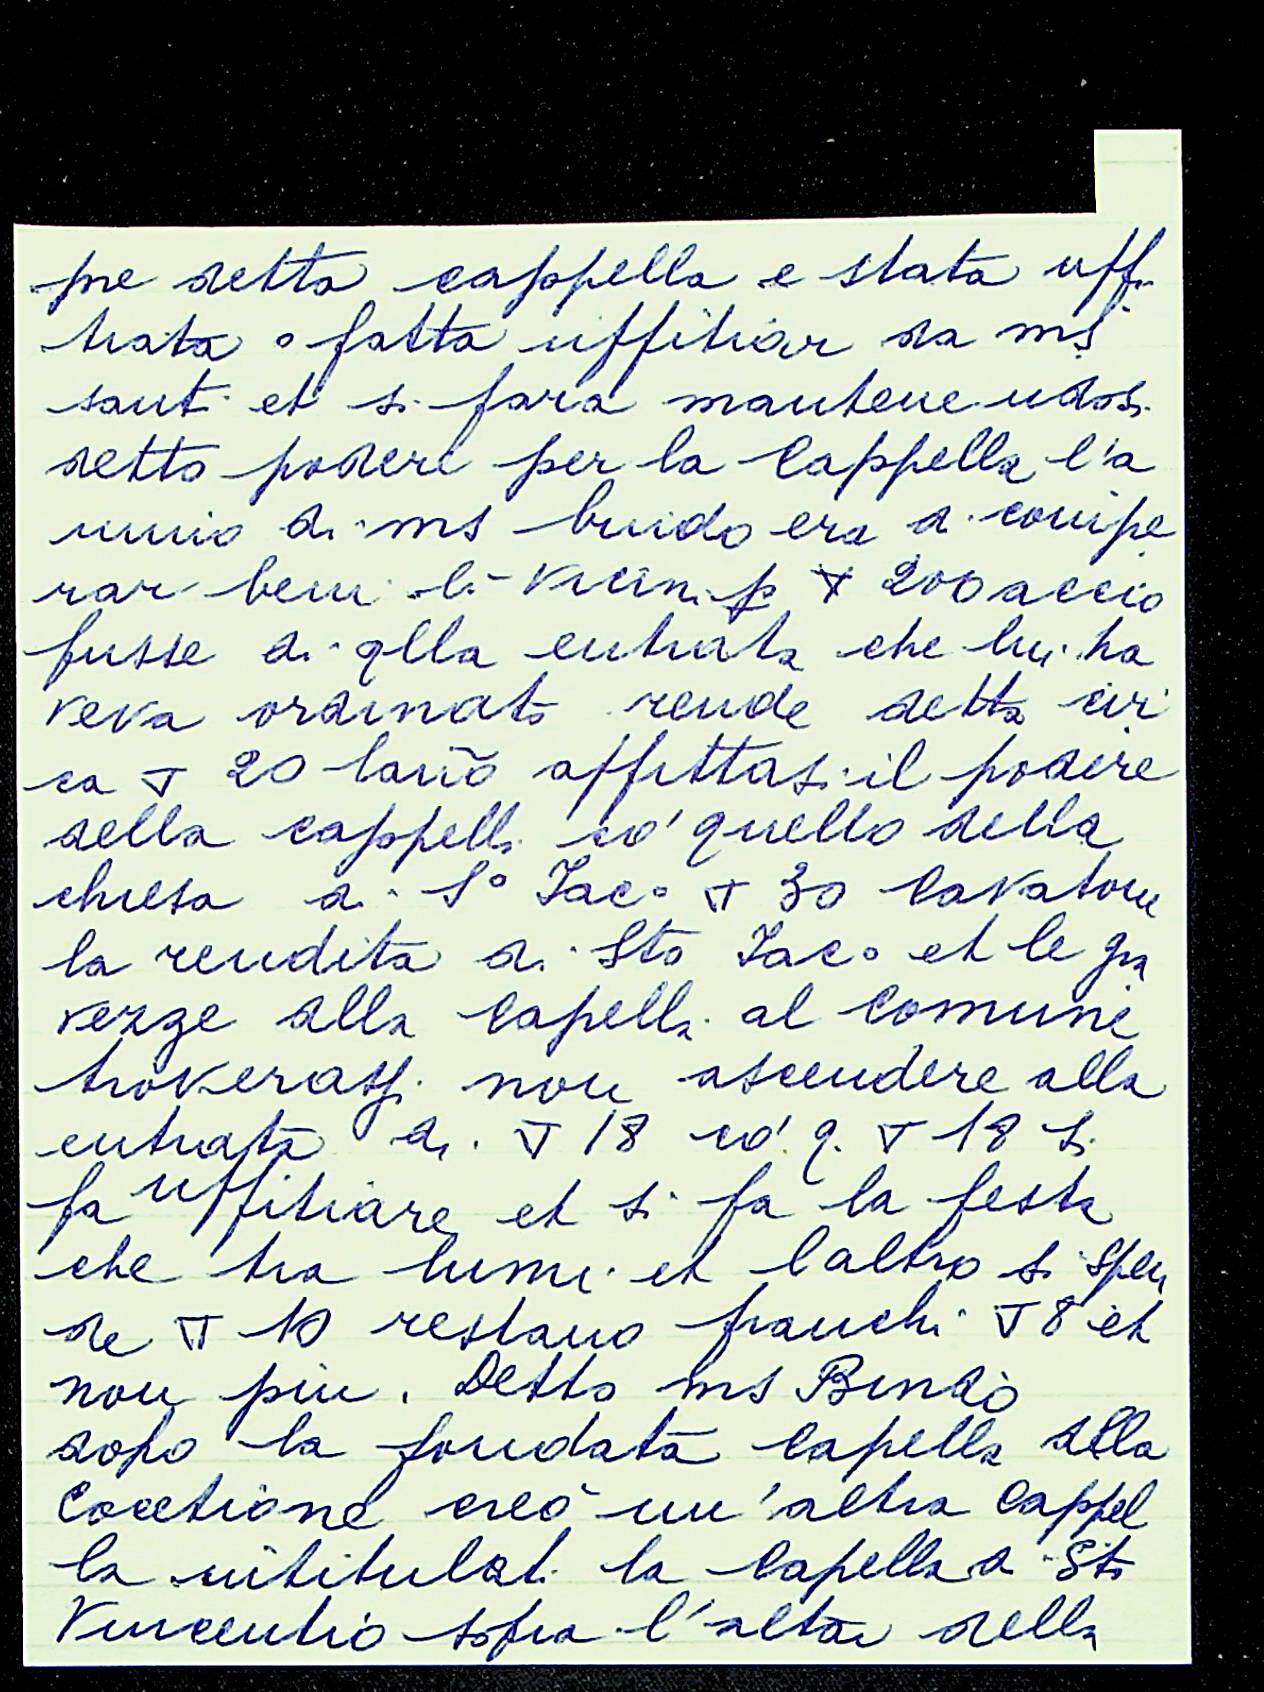 pre detta cappella e stata uffi
tiata o fatta uffitiar da ms
santi et si fara mantenendosi
detto podere per la Cappella l'a
nimo di ms bindo era di compe
rar beni li vicini p ∇ 200 accio
fusse di qlla entrata che lui ha
veva ordinato rende detta cir
ca ∇ 20 lanno affittasi il podere
della cappella co' quello della
chiesa di So Iaco ∇ 30 Cavatone
la rendita di Sto Iaco et le gra
vezze alla Capella al Comune
troverassi non ascendere alla
entrata di ∇ 18 co' q. ∇ 18 si
fa uffitiare et si fa la festa
che tra lumi et l altro si spen
de ∇ 10 restano franchi ∇ 8 et
non piu. Detto ms Bindo
dopo la fondata Capella della
Coccetione creò un'altra Cappel
la intitulat. la Capella di Sto
Vincentio sopra l'altar della